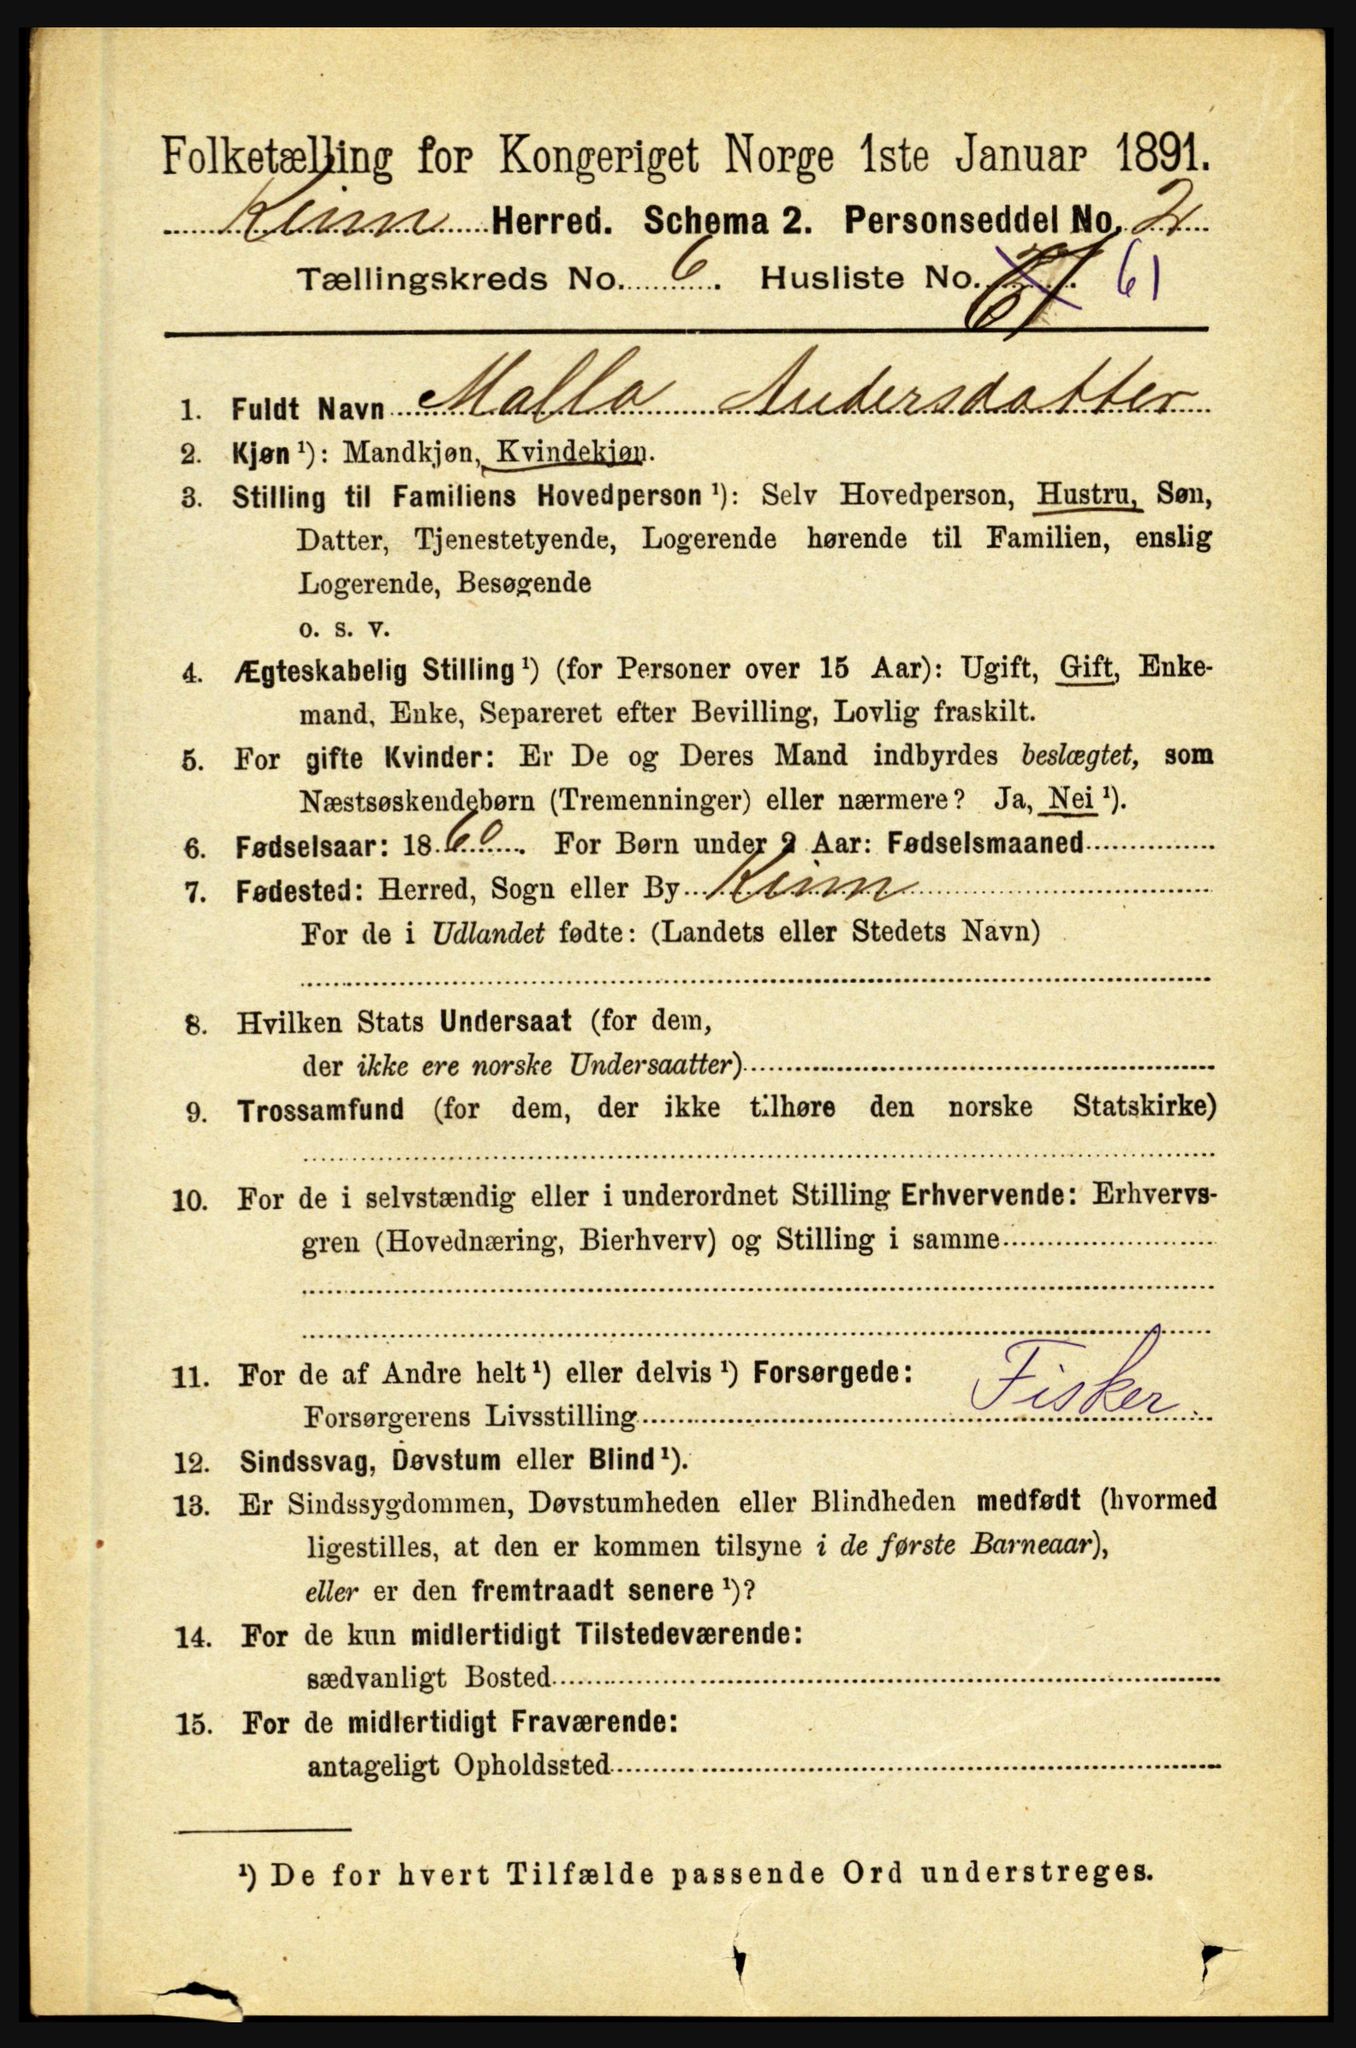 Folketælling for Kongeriget Norge 1ste Januar 1891.
Kinn Herred. Schema 2. Personseddel No. 2
Tællingskreds No. 6. Husliste No. 61 61
1. Fuldt Navn Malla Andersdatter
2. Kjøn ¹): Mandkjøn, Kvindekjøn.
3. Stilling til Familiens Hovedperson ¹): Selv Hovedperson, Hustru, Søn,
Datter, Tjenestetyende, Logerende hørende til Familien, enslig
Logerende, Besøgende
o. s. v.
4. Ægteskabelig Stilling ¹) (for Personer over 15 Aar): Ugift, Gift, Enke-
mand, Enke, Separeret efter Bevilling, Lovlig fraskilt.
5. For gifte Kvinder: Er De og Deres Mand indbyrdes beslægtet, som
Næstsøskendebørn (Tremenninger) eller nærmere? Ja, Nei ¹).
6. Fødselsaar: 1860. For Børn under 2 Aar: Fødselsmaaned
7. Fødested: Herred, Sogn eller By Kinn
For de i Udlandet fødte: (Landets eller Stedets Navn)
8. Hvilken Stats Undersaat (for dem,
der ikke ere norske Undersaatter)
9. Trossamfund (for dem, der ikke tilhøre den norske Statskirke)
10. For de i selvstændig eller i underordnet Stilling Erhvervende: Erhvervs-
gren (Hovednæring, Bierhverv) og Stilling i samme
11. For de af Andre helt ¹) eller delvis ¹) Forsørgede:
Forsørgerens Livsstilling Fisker
12. Sindssvag, Døvstum eller Blind ¹).
13. Er Sindssygdommen, Døvstumheden eller Blindheden medfødt (hvormed
ligestilles, at den er kommen tilsyne i de første Barneaar),
eller er den fremtraadt senere ¹)?
14. For de kun midlertidigt Tilstedeværende:
sædvanligt Bosted
15. For de midlertidigt Fraværende:
antageligt Opholdssted
¹) De for hvert Tilfælde passende Ord understreges.